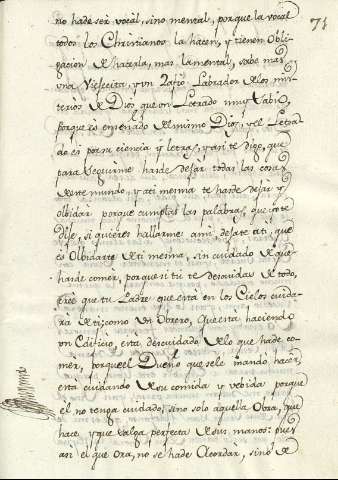 71
no hade ser vocal, sino mental, porque la vocal
todos los Christianos la hacen, y tienen obli-
gacion de hacerla, mas la mental, sabe mas
una Viejecita, y un Zafio Labrador de los mis-
terios de Dios que un Letrado muy Sabio,
porque es enseñado del mismo Dios, y el Letra-
do es por su ciencia y letras, y asi te digo, que
para seguirme harde dejar todas las cosas
de este mundo, y a ti mesma te harde dejar y
olbidar porque cumplas las palabras, que ya te
dije, si quieres hallarme a mi dejate a ti, que
es Olbidarte de ti mesma, sin cuidado de que
harde comer, porque si tu te descuidas de todo,
cree que tu Padre que está en los Cielos cuida-
rá de ti; como Un Obrero, que está haciendo
un Edificio, está descuidado de lo que hade co-
mer, porque el Dueño que se le mando hacer,
está cuidando de su comida y vebida porque
el no tenga cuidado, sino solo aquella Obra, que
hace y que salga perfecta de sus manos: pues
asi el que Ora, no se hade Acordar, sino de